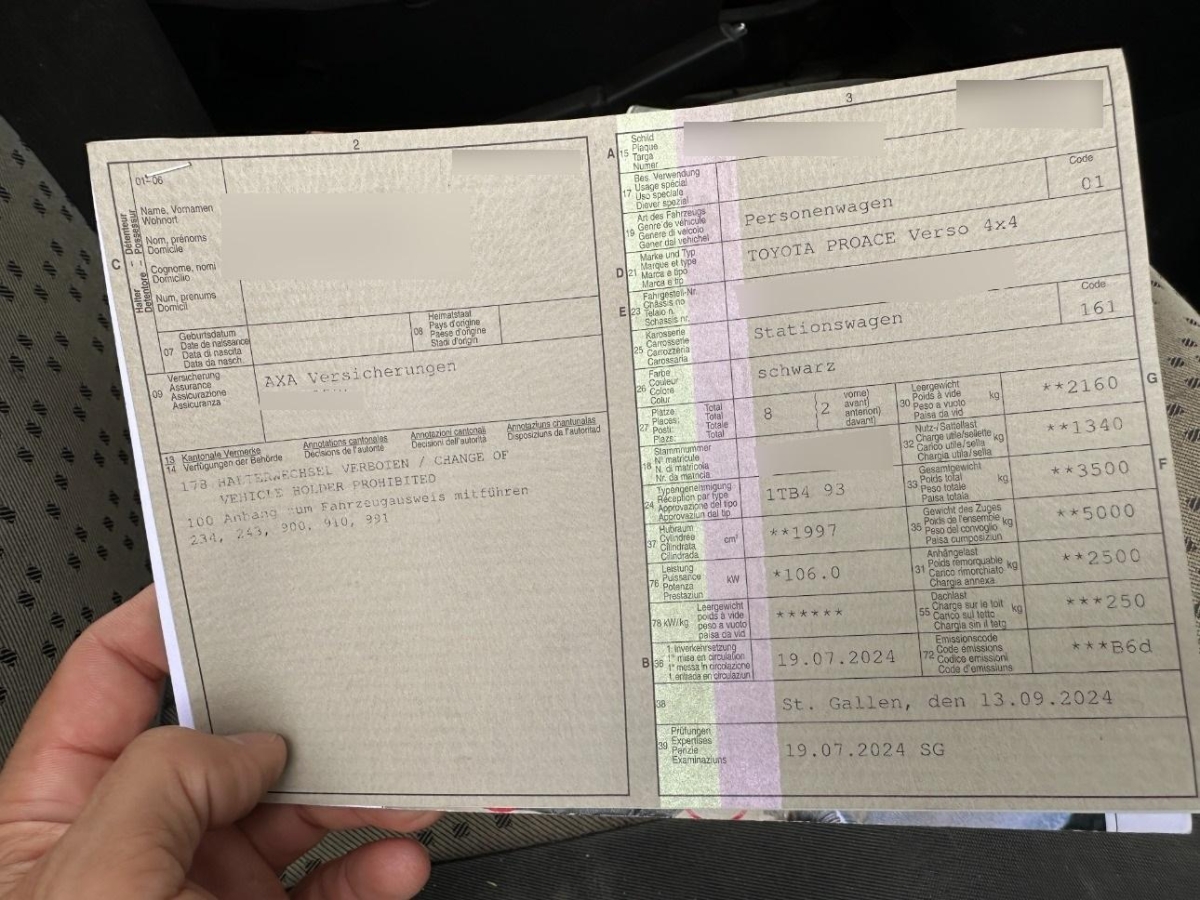 2
01-06
Halter - Détenteur
Detentore - Possessur
C
Name, Vornamen
Wohnort
Nom, prénoms
Domicile
Cognome, nomi
Domicilio
Num, prenums
Domicil
07
Geburtsdatum
Date de naissance
Data di nascita
Data da nasch.
08
Heimatstaat
Pays d'origine
Paese d'origine
Stadi d'origin
09
Versicherung
Assurance
Assicurazione
Assicuranza
AXA Versicherungen
13 Kantonale Vermerke
14 Verfügungen der Behörde
Annotations cantonales
Décisions de l'autorité
Annotazioni cantonali
Decisioni dell'autorità
Annotaziuns chantunalas
Disposiziuns da l'autoritad
178 HALTERWECHSEL VERBOTEN / CHANGE OF
VEHICLE HOLDER PROHIBITED
100 Anhang zum Fahrzeugausweis mitführen
234, 243, 900, 910, 991
3
A 15
Schild
Plaque
Targa
Numer
17
Bes. Verwendung
Usage spécial
Uso speciale
Diever spezial
Code
19
Art des Fahrzeugs
Genre de véhicule
Genere di veicolo
Gener dal vehichel
Personenwagen
01
D 21
Marke und Typ
Marque et type
Marca e tipo
Marca e tip
TOYOTA PROACE Verso 4x4
E 23
Fahrgestell-Nr.
Châssis no
Telaio n.
Schassis nr.
Code
25
Karosserie
Carrosserie
Carrozzeria
Carossaria
Stationswagen
161
26
Farbe
Couleur
Colore
Colur
schwarz
27
Plätze: Total
Places: Total
Posti: Totale
Plazs: Total
8
2
vorne)
avant)
anteriori)
davant)
30
Leergewicht
Poids à vide
Peso a vuoto
Paisa da vid
kg
**2160
G
18
Stammnummer
N° matricule
N. di matricola
Nr. da matricla
32
Nutz-/Sattellast
Charge utile/sellette
Carico utile/sella
Chargia utila/sella
kg
**1340
33
Gesamtgewicht
Poids total
Peso totale
Paisa totala
kg
**3500
F
24
Typengenehmigung
Réception par type
Approvazione del tipo
Approvaziun dal tip
1TB4 93
35
Gewicht des Zuges
Poids de l'ensemble
Peso del convoglio
Paisa cumposiziun
kg
**5000
37
Hubraum
Cylindrée
Cilindrata
Cilindrada
cm³
**1997
31
Anhängelast
Poids remorquable
Carico rimorchiato
Chargia annexa
kg
**2500
76
Leistung
Puissance
Potenza
Prestaziun
kW
*106.0
55
Dachlast
Charge sur le toit
Carico sul tetto
Chargia sin il tetg
kg
***250
78 kW/kg
Leergewicht
poids à vide
peso a vuoto
paisa da vid
******
72
Emissionscode
Code émissions
Codice emissioni
Code d'emissiuns
***B6d
B 36
1. Inverkehrsetzung
1re mise en circulation
1a messa in circolazione
1. entrada en circulaziun
19.07.2024
38
St. Gallen, den 13.09.2024
39
Prüfungen
Expertises
Perizie
Examinaziuns
19.07.2024 SG